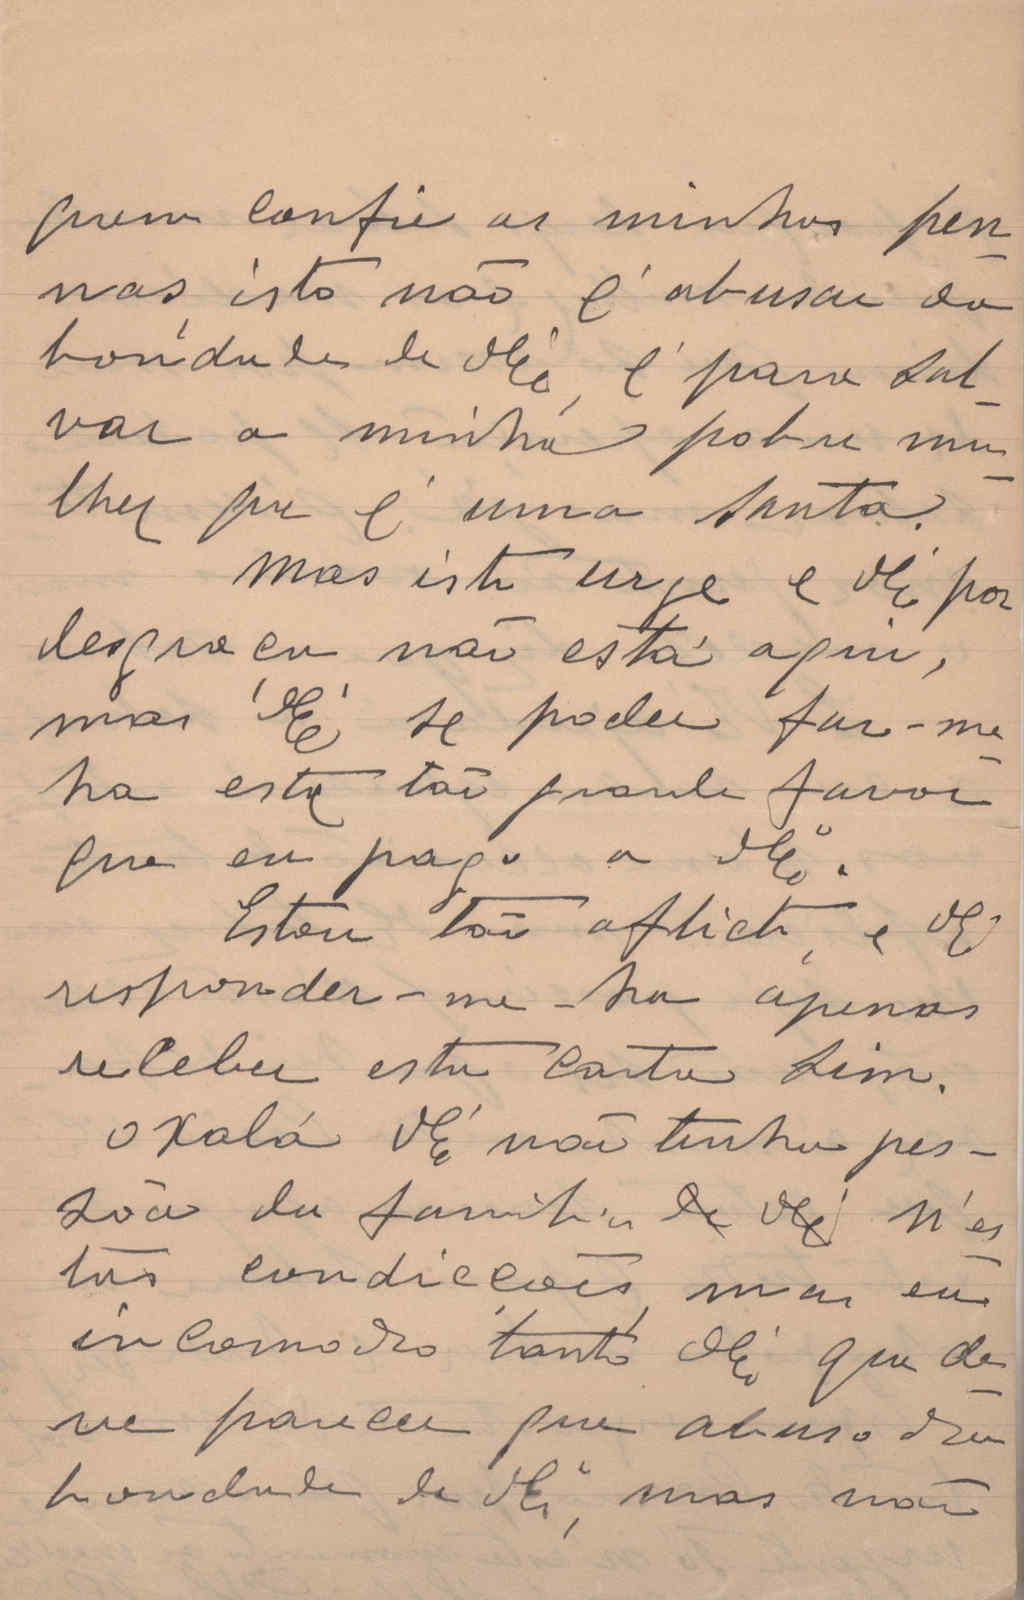 quem confie as minhas pen
nas, isto não é abusar da
bondade de VExª, é para sal_
var a minha pobre mu_
lher que é uma santa.
Mas isto urge e VExª por
desgraça não está aqui,
mas VExª se poder far-me
ha este tão grande favor
que eu pago a VExª.
Estou tão aflicto, e VExª
responder-me-ha apenas
receber esta carta sim.
Oxalá VExª não tenha pes-
sôa da familia de VExª n'es
tas condicções, mas eu
incomodo tanto VExª que de_
ve parecer que abuso da
bondade de VExª, mas não